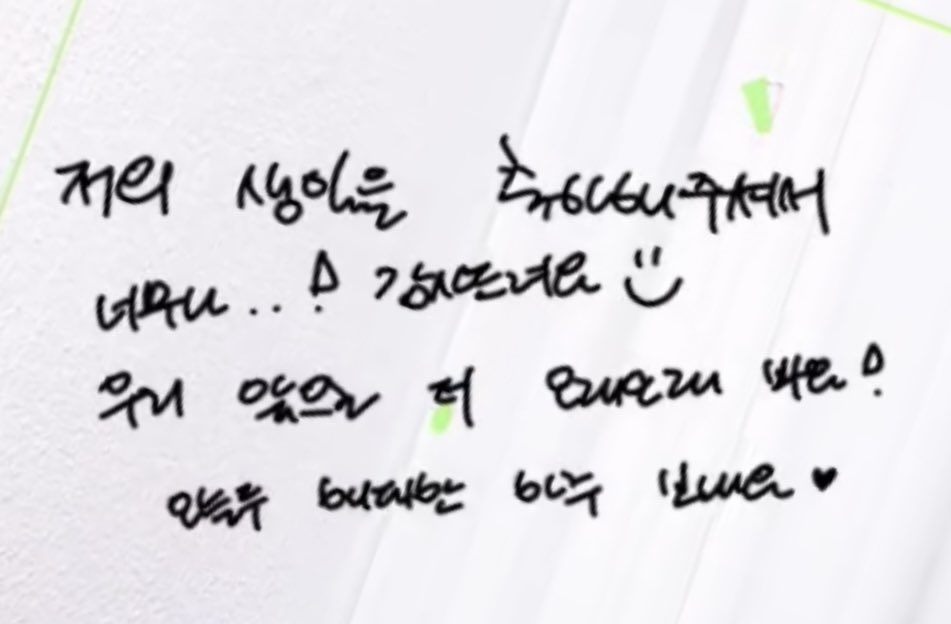 저의 생일을 축하해주셔서
너무나..! 감사드려요
우리 앞으로 더 오래오래 봐요!
오늘두 행복한 하루 보내요♥